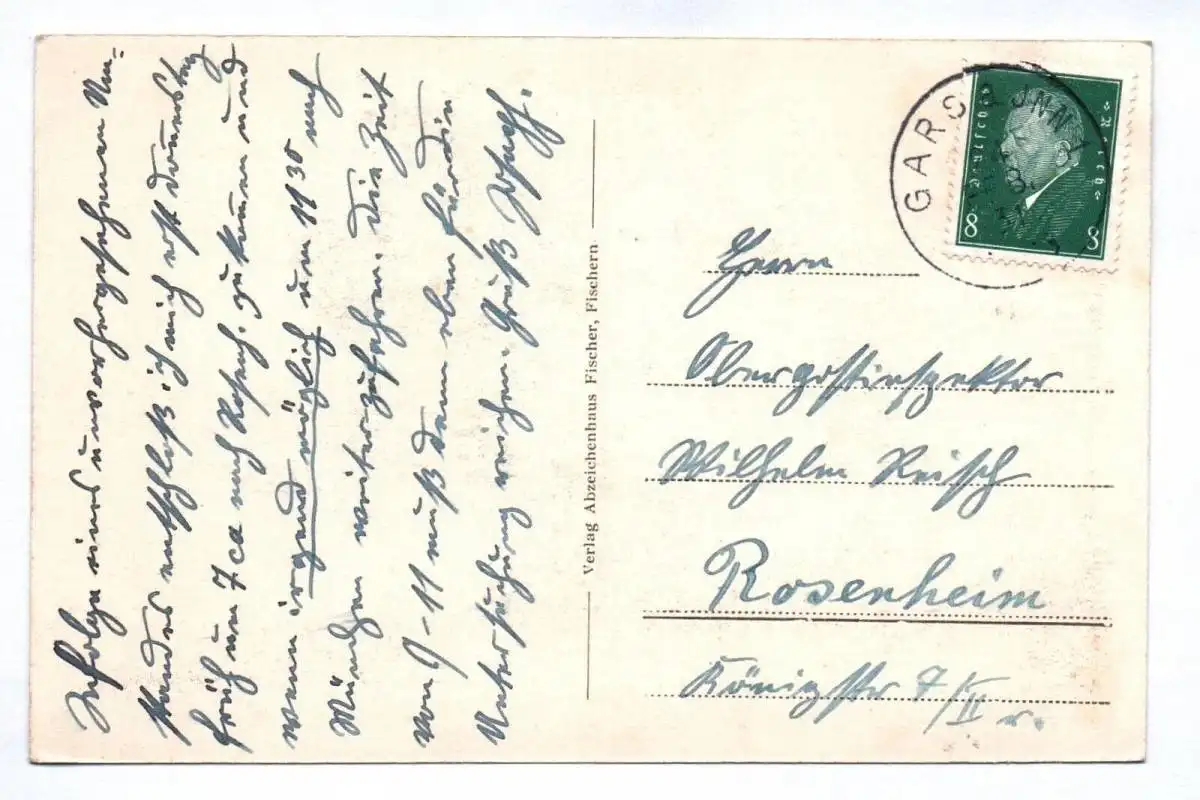 Infolge eines unvorhergesehenen Um-
standes entschloß ich mich erst Donnerstag
früh um 7 ca nach Rosenh. zu kommen und
wenn irgend möglich um 11 30 nach
München weiterzufahren. Die Zeit
von 9-11 muß dann eben für die
Untersuchung reichen. Gruß
Verlag Abzeichenhaus Fischer, Fischern
GARS (INN)
Deutsches Reich
8 8
Herrn
Oberpostinspektor
Wilhelm Reisch
Rosenheim
Königstr 7/II r.